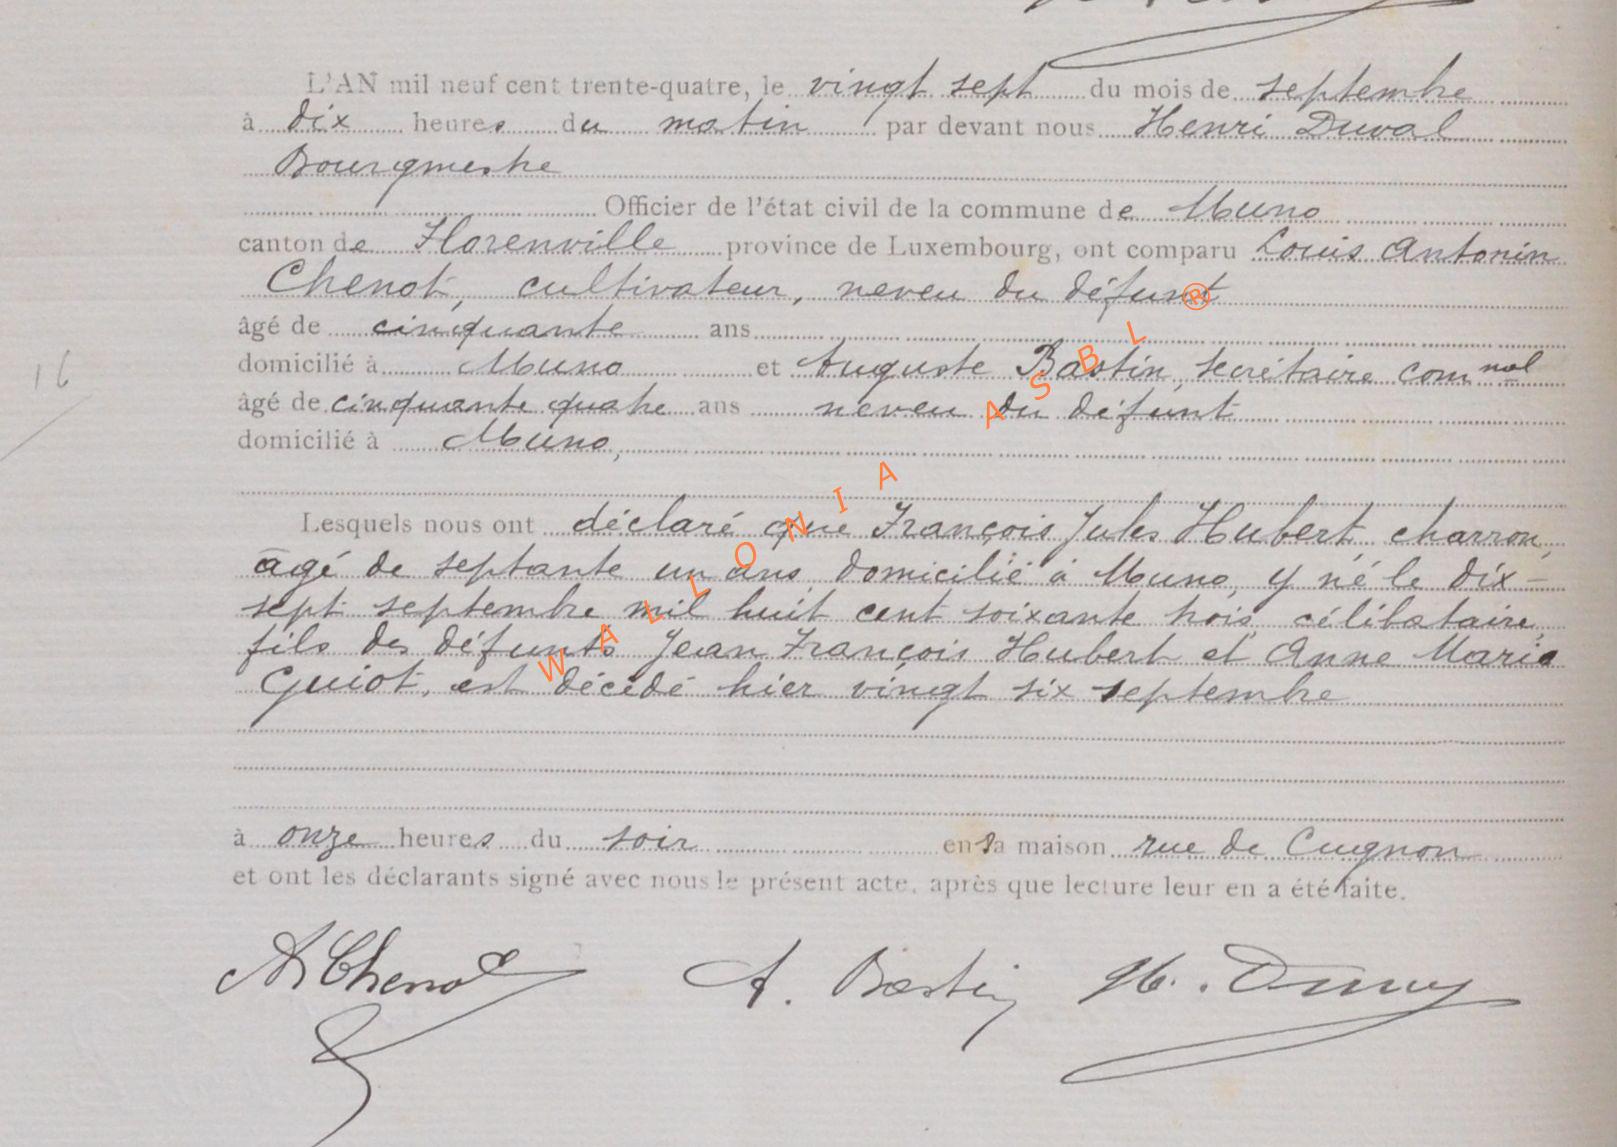 L'AN mil neuf cent trente-quatre, le vingt sept du mois de septembre
à dix heures du matin par devant nous Henri Duval
Bourgmestre
Officier de l'état civil de la commune de Muno
canton de Florenville province de Luxembourg, ont comparu Louis Antonin
Chenot, cultivateur, neveu du défunt
âgé de cinquante ans
domicilié à Muno et Auguste Bastin, secrétaire comnal
âgé de cinquante quatre ans neveu du défunt
domicilié à Muno,
Lesquels nous ont déclaré que François Jules Hubert, charron,
âgé de septante un ans, domicilié à Muno, y né le dix-
sept septembre mil huit cent soixante trois, célibataire,
fils des défunts Jean François Hubert et Anne Marie
Guiot, est décédé hier vingt six septembre
à onze heures du soir en sa maison rue de Cugnon
et ont les déclarants signé avec nous le présent acte, après que lecture leur en a été faite.
A Chenot A. Bastin H. Duval
16
WALLONIA ASBL ®